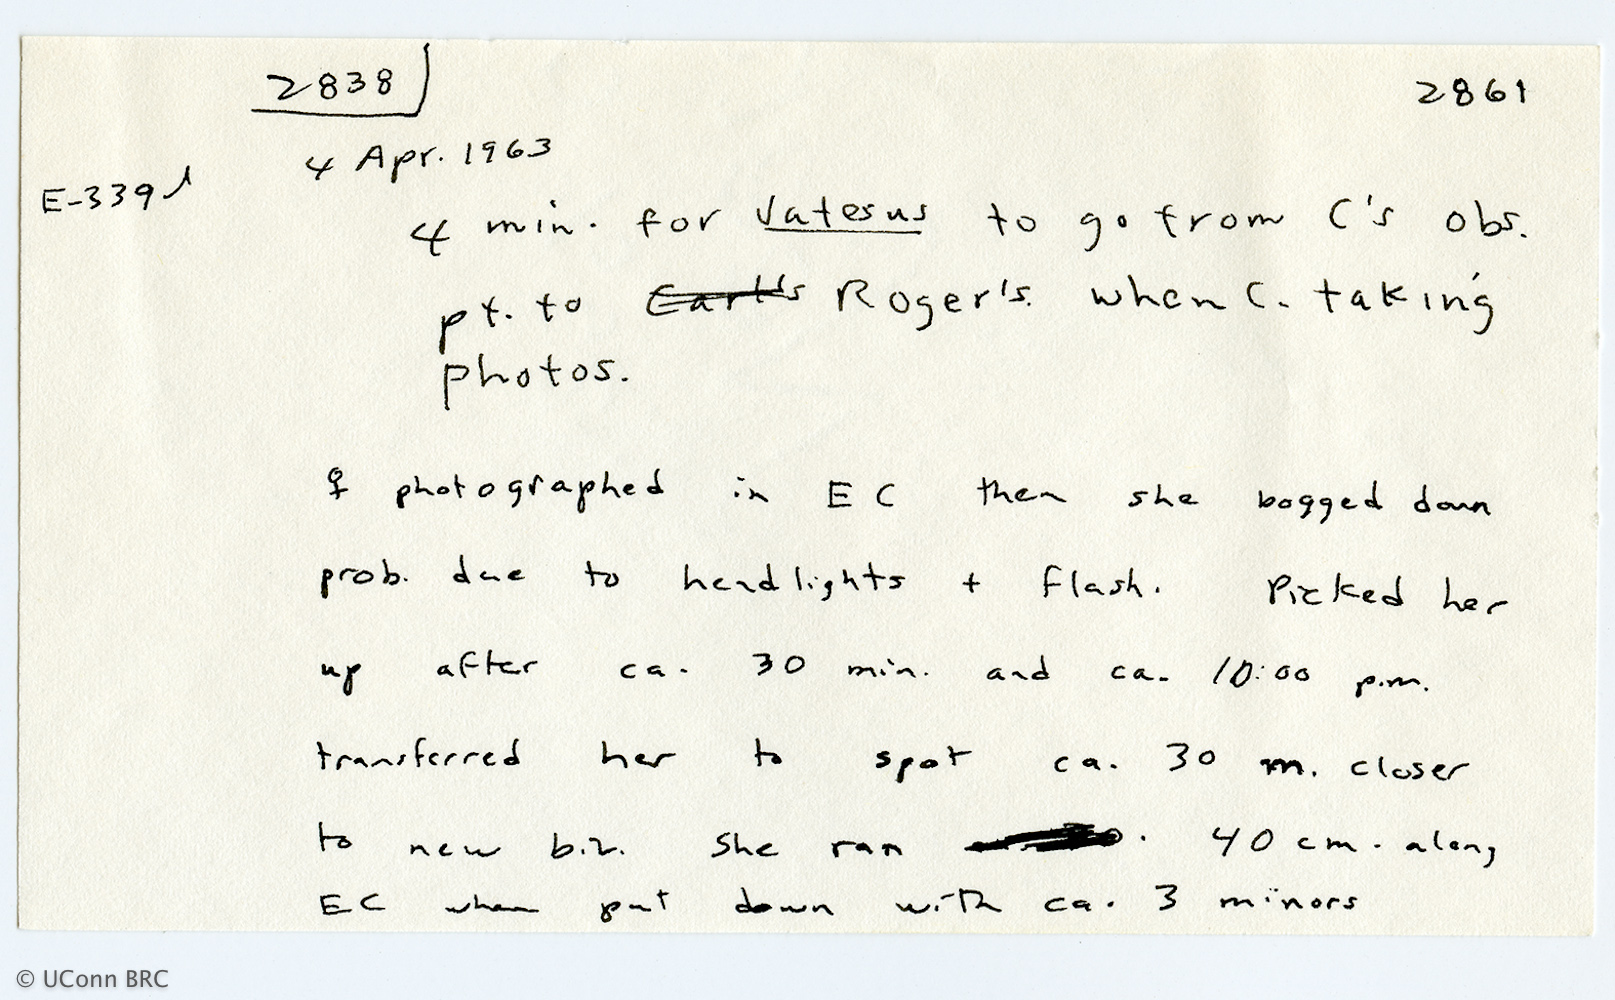 2838
2861
4 Apr. 1963
E-339
4 min. for Vatesus to go from C's obs.
pt. to Carl's Roger's. when C. taking
photos.
♀ photographed in EC then she bogged down
prob. due to headlights + flash. Picked her
up after ca. 30 min. and ca. 10:00 p.m.
transferred her to spot ca. 30 m. closer
to new biv. She ran . 40 cm. along
EC when put down with ca. 3 minors
© UConn BRC